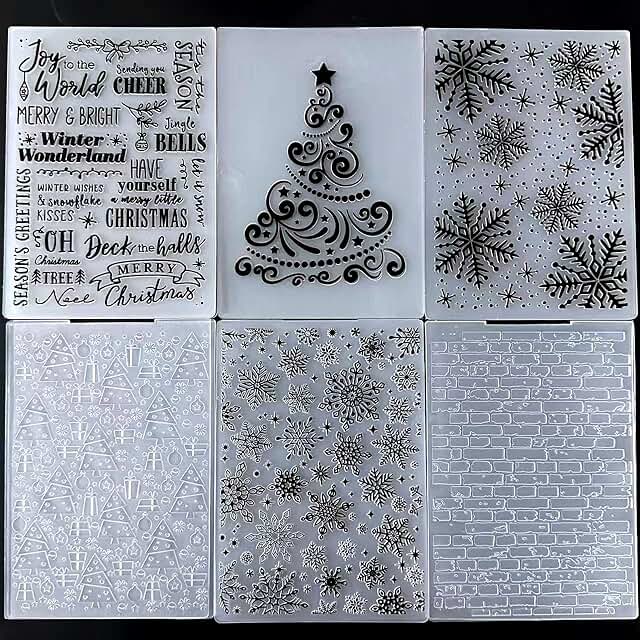 Joy to the World
Sending you
CHEER
SEASON
MERRY & BRIGHT
Jingle
BELLS
Winter
Wonderland
HAVE
yourself
a merry little
CHRISTMAS
let it snow
WINTER WISHES
& snowflake
KISSES
SEASON'S GREETINGS
OH
Christmas
TREE
Deck the halls
MERRY
Noel
Christmas